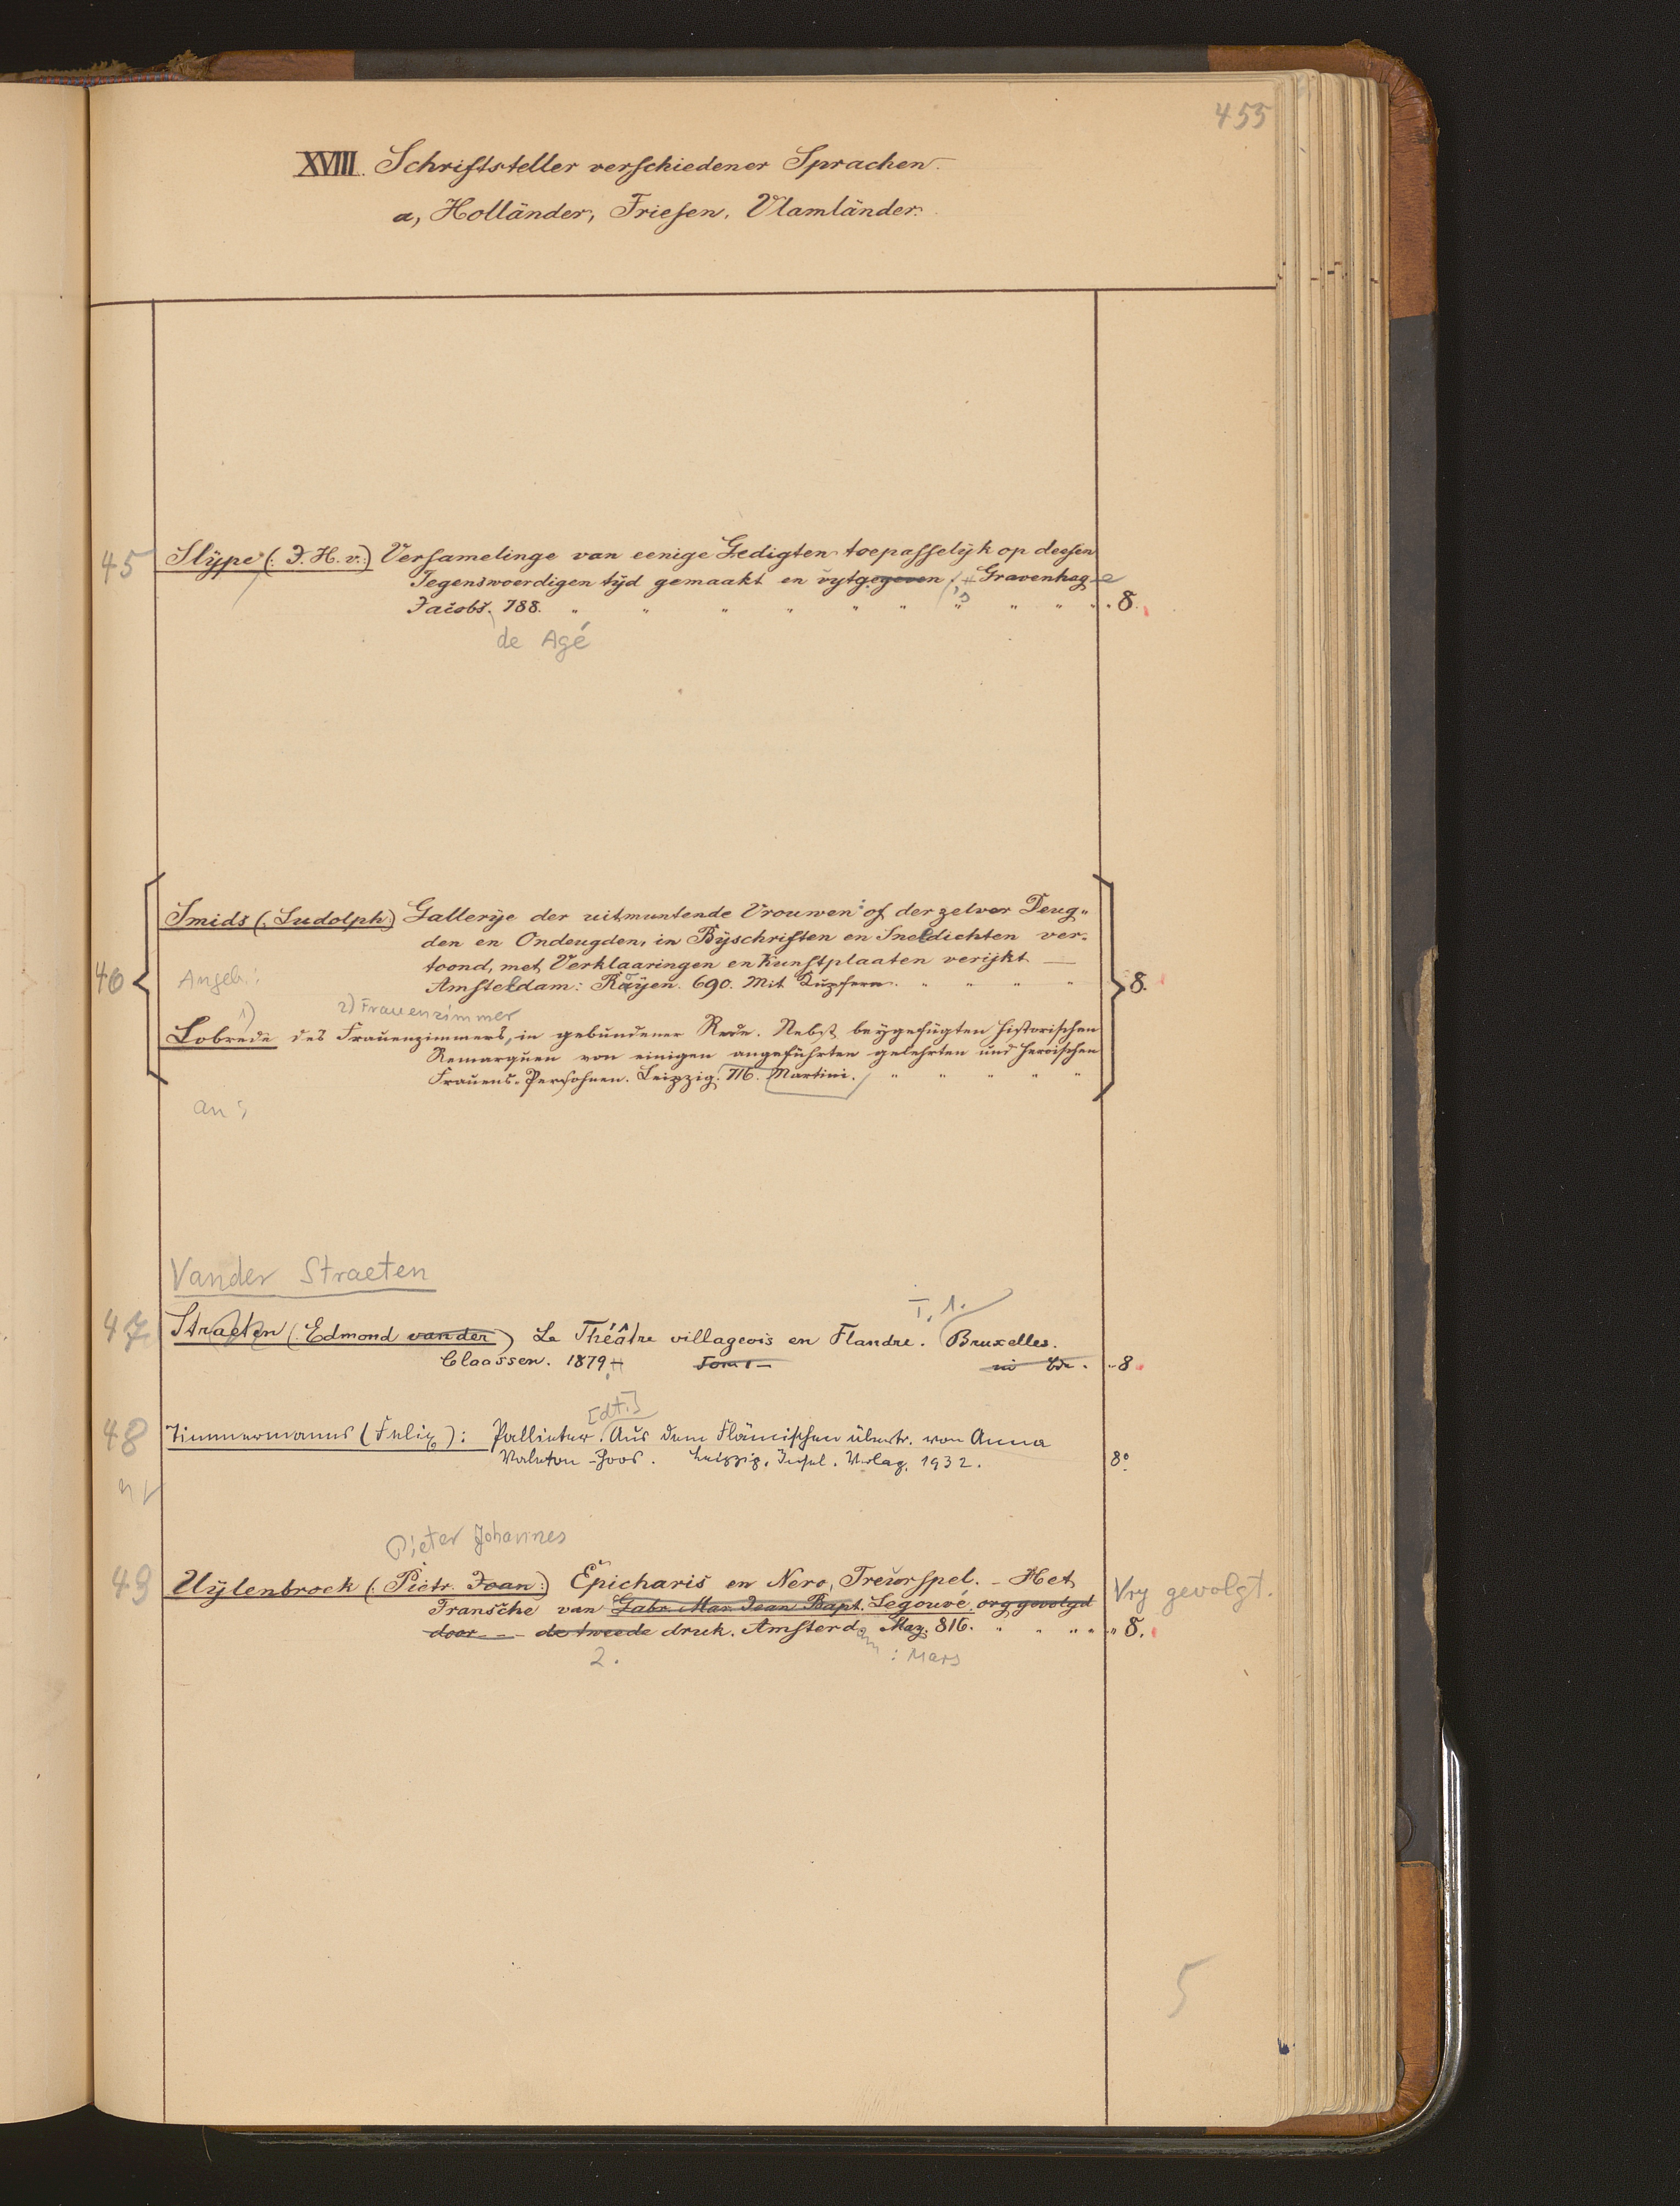 455
XVIII. Schriftsteller verschiedener Sprachen.
a, Holländer, Friesen, Vlamländer.
45 Slÿpe (: J. H. v.:) Versamelinge van eenige Gedigten toepasselÿk op deesen
Tegenswoerdigen tÿd gemaakt en uytgegeven 's Gravenhage
Jacobs. 788. " " " " " " " " " " 8.
de Agé
Smids (: Ludolph:) Gallerÿe der uitmuntende Vrouwen: of der zelver Deug-
den en Ondeugden, in Bÿschriften en Sneldichten ver-
46 Angeb.: toond, met Verklaaringen en Kunstplaaten verijkt —
Amsteldam: Rayen. 690. Mit Kupfern. " " " " 8.
1) 2) Frauenzimmer
Lobrede des Frauenzimmers, in gebundener Rede. Nebst beygefügten historischen
Remarquen von einigen angeführten gelehrten und heroischen
Frauens-Persohnen. Leipzig. 716. Martini. " " " " "
an:
Vander Straeten
T. 1.
47 Straeten (: Edmond van der) Le Théâtre villageois en Flandre. Bruxelles.
Claassen. 1879 Tom 1 — 8
[dt.]
48 Timmermanns (Felix): Pallieter. Aus dem Flämischen übertr. von Anna
Valeton-Hoos. Leipzig, Insel-Verlag, 1932. 8°
Pieter Johannes
49 Uÿlenbroek (: Pietr. Joan:) Epicharis en Nero, Treurspel. - Het
Vry gevolgt.
Fransche van Gabr. Mar. Jean Bapt. Legouvé. vry gevolgd
door - - - de tweede druk. Amsterdam Maz. 816. " " " " " 8.
2. : Mars
5